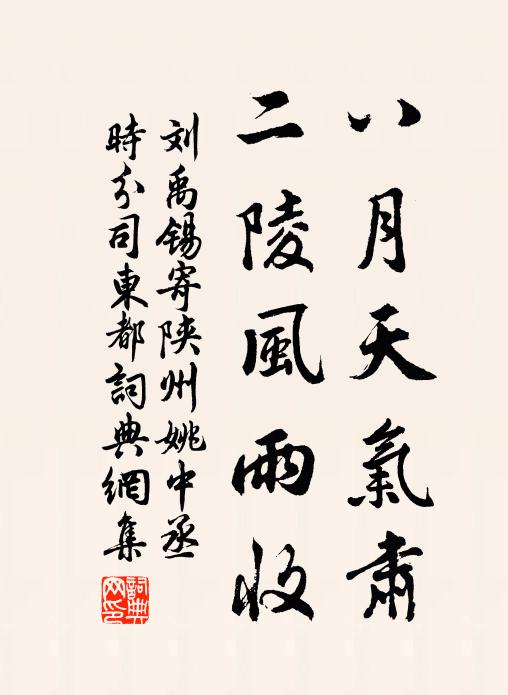 八月天氣肅
二陵風雨收
刘禹锡寄陕州姚中丞
時分司東都詞典網集
詞典网印